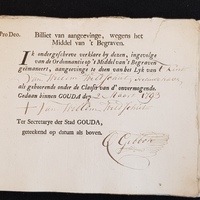 Pro Deo.
Billiet van aangeevinge, wegens het
Middel van 't Begraven.
Ik ondergeschreve verklare by dezen, ingevolge
van de Ordonnantie op 't Middel van 't Begraven
geëmaneert, aangeevinge te doen van het Lyk van
Jan Willem
als gehoorende onder de Classis van d' onvermogende.
Gedaan binnen GOUDA, den 2 Maart 1793
Jan Willem
Ter Secretarye der Stad GOUDA,
geteekend op datum als boven.